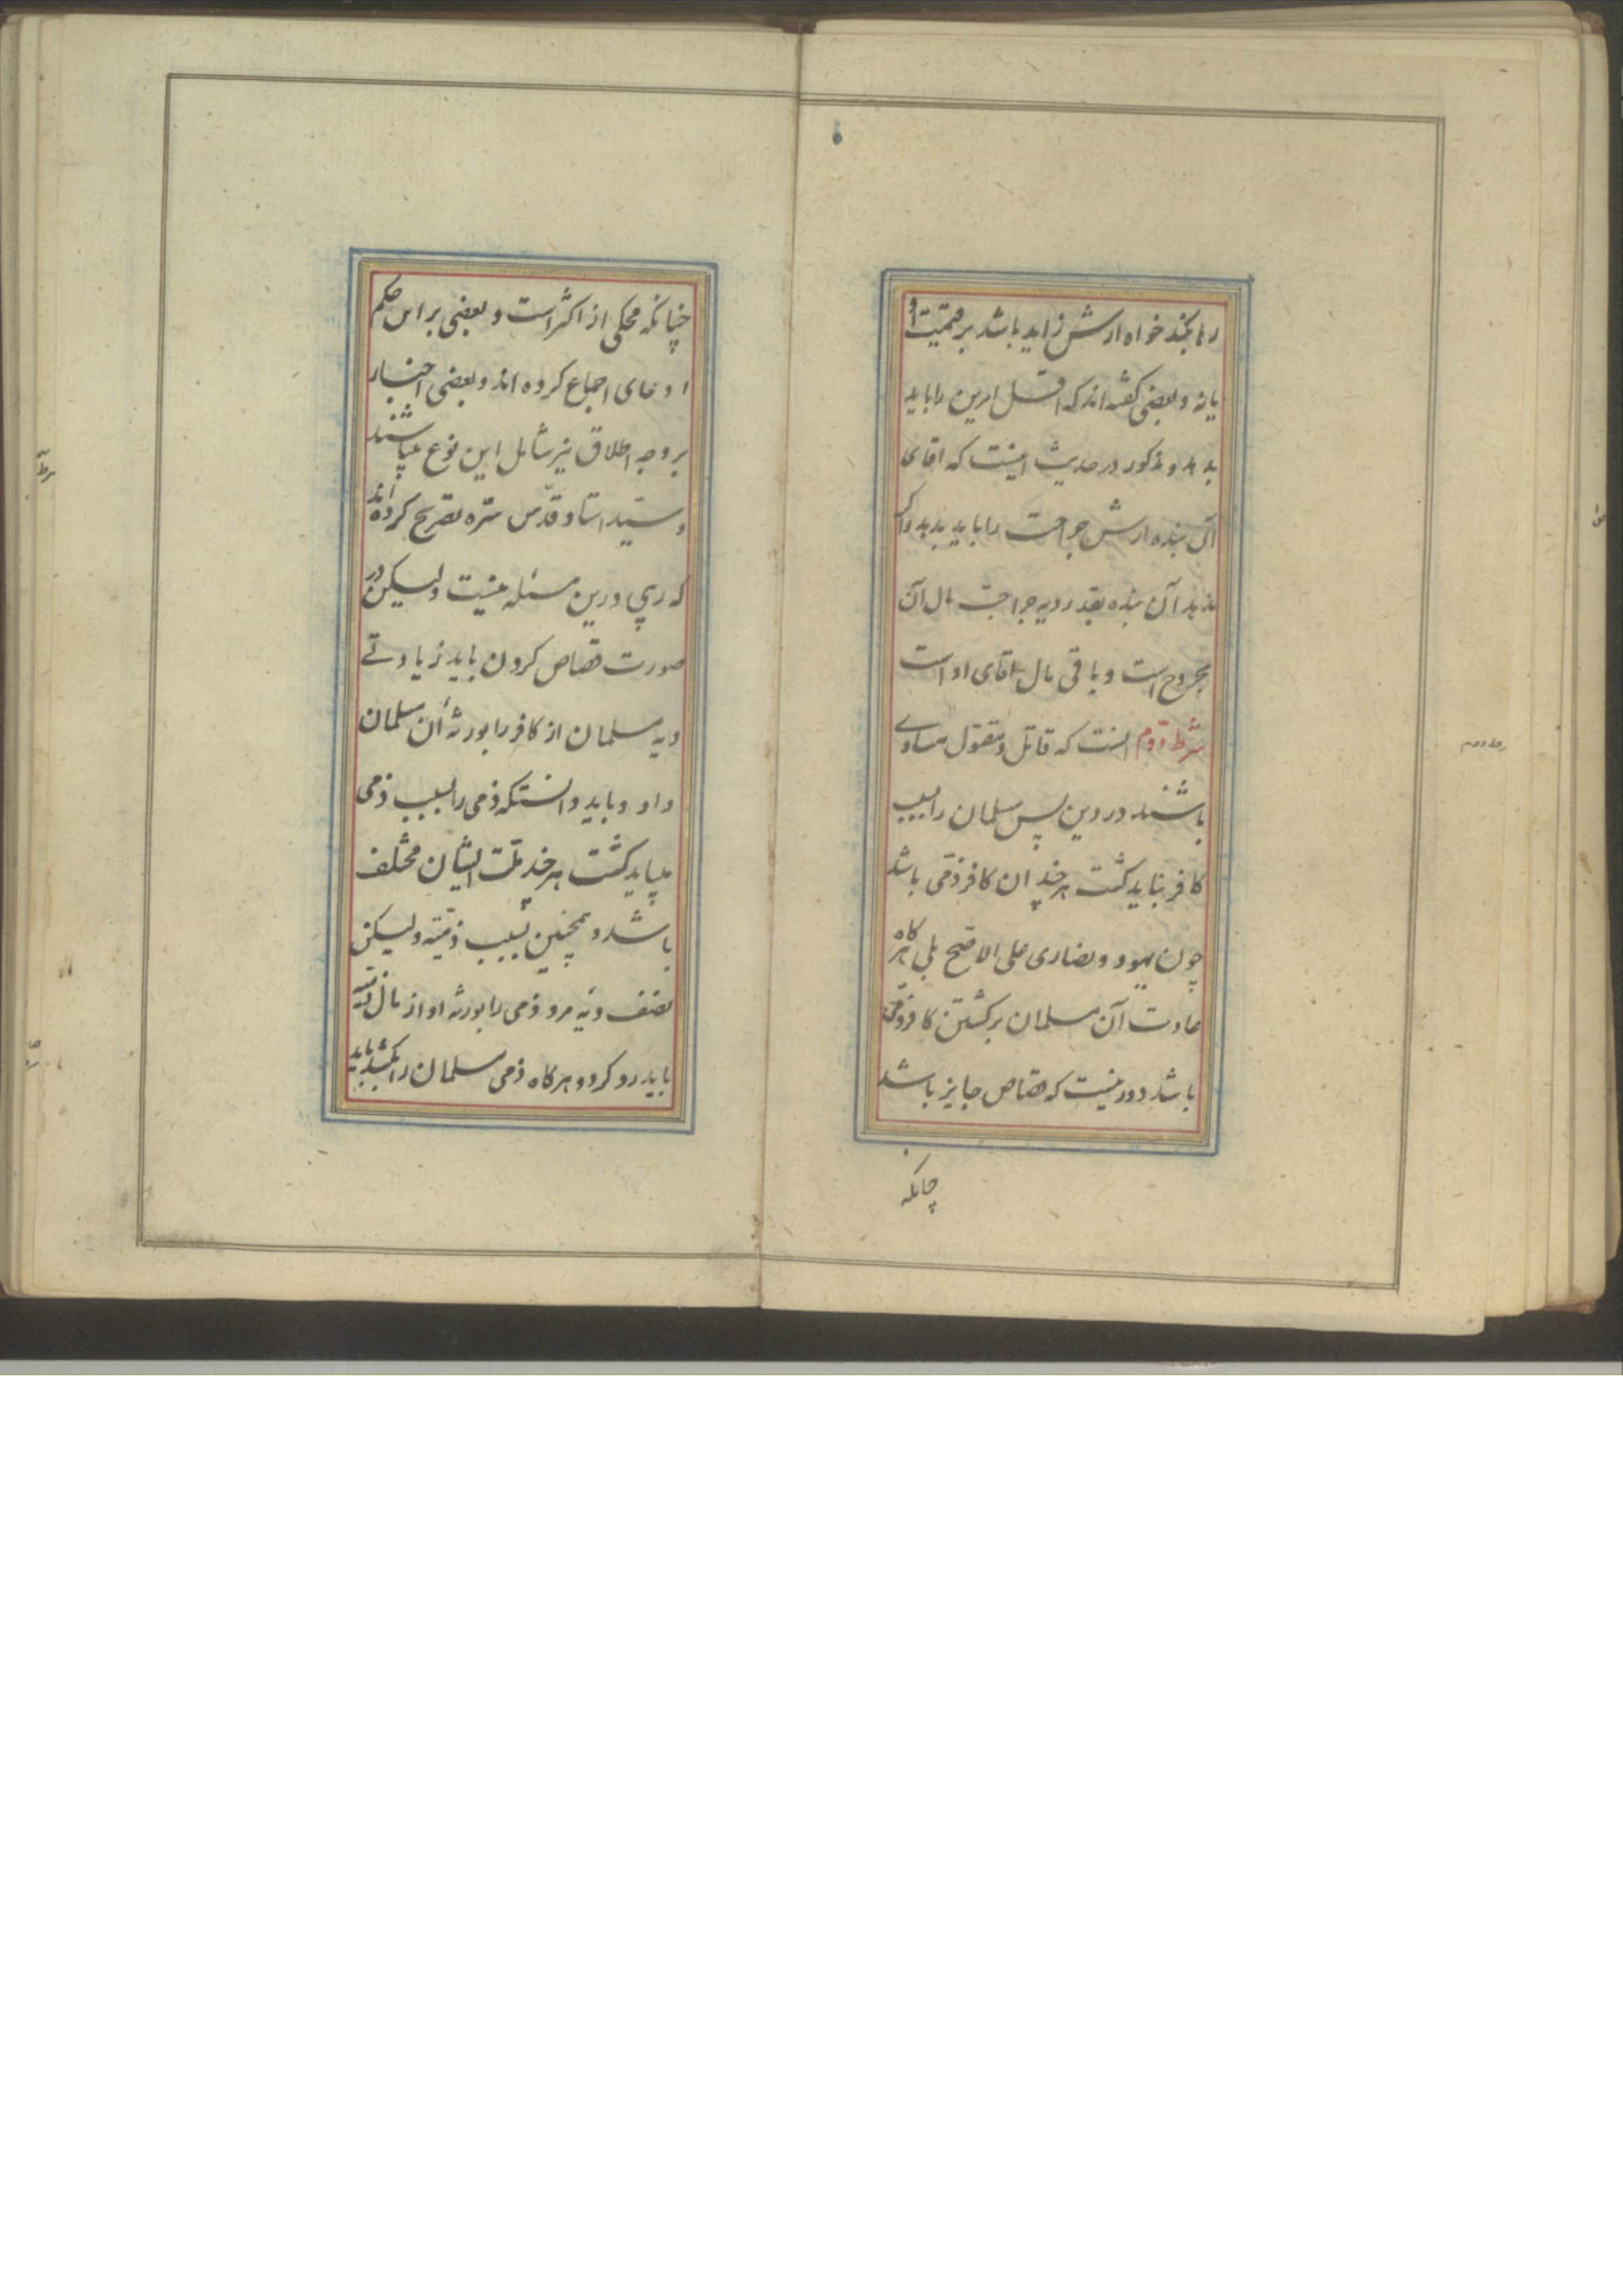 رها بکند خواه ارش زاید باشد بر قیمت او
یا نه و بعضی کفته اند که اقل امرین را باید
بدهد و مذکور در حدیث اینست که اقای
آن بنده ارش جراحت را باید بدهد واکر
ندهد آن بنده بقدر دیه جراحت مال آن
مجروح است و باقی مال اقای او است
شرط دوم انست که قاتل و مقتول مساوی
باشند در دین پس مسلمان را بسبب
کافر نباید کشت هر چند ان کافر ذمی باشد
چون یهود و نصاری علی الاصح بلی هرکاه
عادت آن مسلمان بر کشتن کافر ذمی
باشد دور نیست که قصاص جایز باشد
چنانکه
چنانکه محکی از اکثر است و بعضی بر این حکم
ادعای اجماع کرده اند و بعضی اخبار
بر وجه اطلاق نیز شامل این نوع میباشند
و سید استاد قدس سره تصریح کرده اند
که ریبی درین مسئله نیست ولیکن در
صورت قصاص کردن باید زیادتی
دیه مسلمان از کافر را بورثهٔ آن مسلمان
داد و باید دانستکه ذمی را بسبب ذمی
میباید کشت هر چند ملت ایشان مختلف
باشد و همچنین بسبب ذمیه ولیکن
نصف دیه مرد ذمی را بورثه او از مال ذمیه
باید رد کرد و هرکاه ذمی مسلمان را بکشد باید